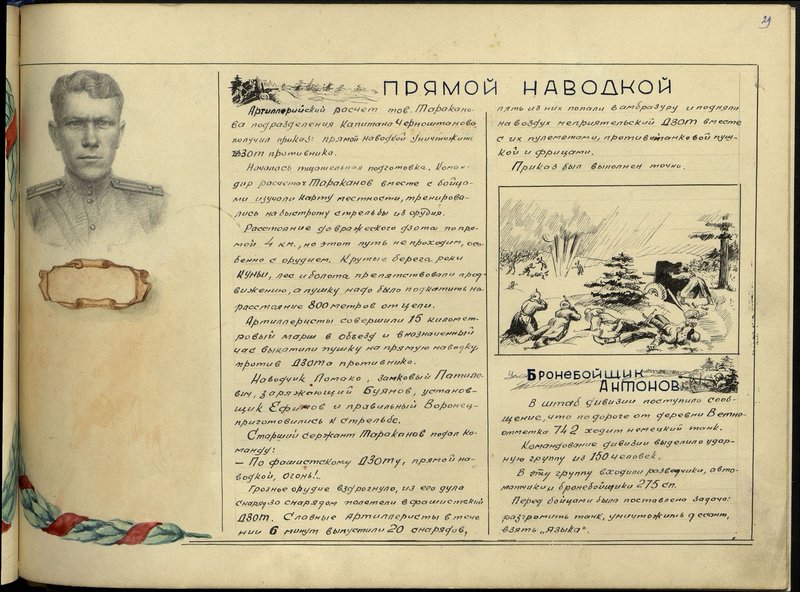 29
ПРЯМОЙ НАВОДКОЙ
Артиллерийский расчет тов. Таракано-
ва подразделения Капитана Черноштанова,
получил приказ: прямой наводкой уничтожить
ДЗОТ противника.
Началась тщательная подготовка. Коман-
дир расчета Тараканов вместе с бойца-
ми изучали карту местности, тренирова-
лись на быстроту стрельбы из орудия.
Расстояние до вражеского дзота по пря-
мой 4 км., но этот путь не проходим, осо-
бенно с орудием. Крутые берега реки
КУНЬИ, лес и болота препятствовали прод-
вижению, а пушку надо было подкатить на
расстояние 800 метров от цели.
Артиллеристы совершили 15 километ-
ровый марш в объезд и в назначенный
час выкатили пушку на прямую наводку,
против ДЗОТа противника.
Наводчик Ломако, замковый Патие-
вич, заряжающий Буянов, установ-
щик Ефимов и правильный Воронец-
приготовились к стрельбе.
Старший сержант Тараканов подал ко-
манду:
— По фашистскому ДЗОТу, прямой на-
водкой, огонь!..
Грозные орудие вздрогнуло, из его дула
снаряд за снарядом полетели в фашистский
ДЗОТ. Славные Артиллеристы в тече-
нии 6 минут выпустили 20 снарядов,
пять из них попали в амбразуру и подняли
на воздух неприятельский ДЗОТ вместе
с их пулеметами, противотанковой пуш-
кой и фрицами.
Приказ был выполнен точно.
БРОНЕБОЙЩИК
АНТОНОВ
В штаб дивизии поступило сооб-
щение, что по дороге от деревни Ветно-
отметка 74.2 ходит немецкий танк.
Командование дивизии выделило удар-
ную группу из 150 человек.
В эту группу входили разведчики, авто-
матчики и бронебойщики 275 сп.
Перед бойцами была поставлена задача:
разгромить танк, уничтожить десант,
взять „Языка".